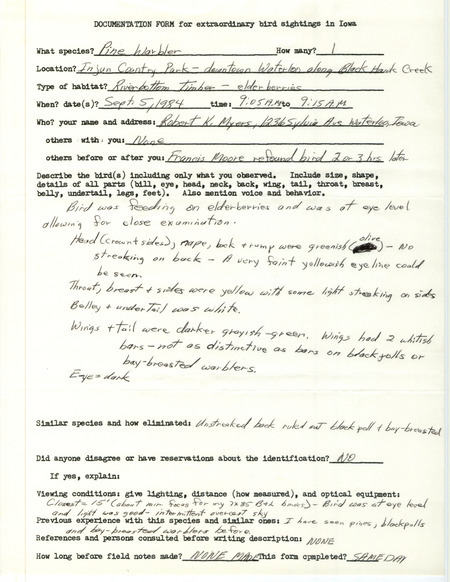 DOCUMENTATION FORM for extraordinary bird sightings in Iowa
What species? Pine Warbler How many? 1
Location? Injun Country Park - downtown Waterloo along Black Hawk Creek
Type of habitat? Riverbottom Timber - elderberries
When? date(s)? Sept. 5, 1984 time: 9:05 A.M. to 9:15 A.M.
Who? your name and address: Robert K. Myers, 1236 Sylvia Ave Waterloo, Iowa
others with you: None
others before or after you: Francis Moore refound bird 2 or 3 hrs. later
Describe the bird(s) including only what you observed. Include size, shape,
details of all parts (bill, eye, head, neck, back, wing, tail, throat, breast,
belly, undertail, legs, feet). Also mention voice and behavior.
Bird was feeding on elderberries and was at eye level
allowing for close examination.
Head (crown + sides), nape, back + rump were greenish (olive) - NO
streaking on back - A very faint yellowish eyeline could
be seen.
Throat, breast + sides were yellow with some light streaking on sides
Belley + undertail was white.
Wings + tail were darker grayish-green. Wings had 2 whitish
bars - not as distinctive as bars on blackpolls or
bay-breasted warblers.
Eye = dark
Similar species and how eliminated: Unstreaked back ruled out blackpoll + bay-breasted
Did anyone disagree or have reservations about the identification? NO
If yes, explain:
Viewing conditions: give lighting, distance (how measured), and optical equipment:
Closest = 15' (about min. focus for my 7x35 B+L binocs) - Bird was at eye level
and light was good - intermittent overcast sky
Previous experience with this species and similar ones: I have seen pines, blackpolls
and bay-breasted warblers before.
References and persons consulted before writing description: NONE
How long before field notes made? NONE MADE This form completed? SAME DAY